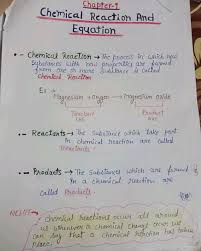 Chapter-1
Chemical Reaction And
Equation
• Chemical Reaction → The process in which new
substances with new properties are formed
from one or more substance is called
Chemical Reaction
Ex :-
Magnesium + oxygen → magnesium oxide
Reactant
Product
• Reactants → The substance which take part
in chemical reaction are
called Reactants.
• Products → The substances which are formed
in a chemical reaction are
called Products.
NOTE:
Chemical reactions occur all around
us whenever a chemical change occur we
can say that a chemical reaction has taken
place.